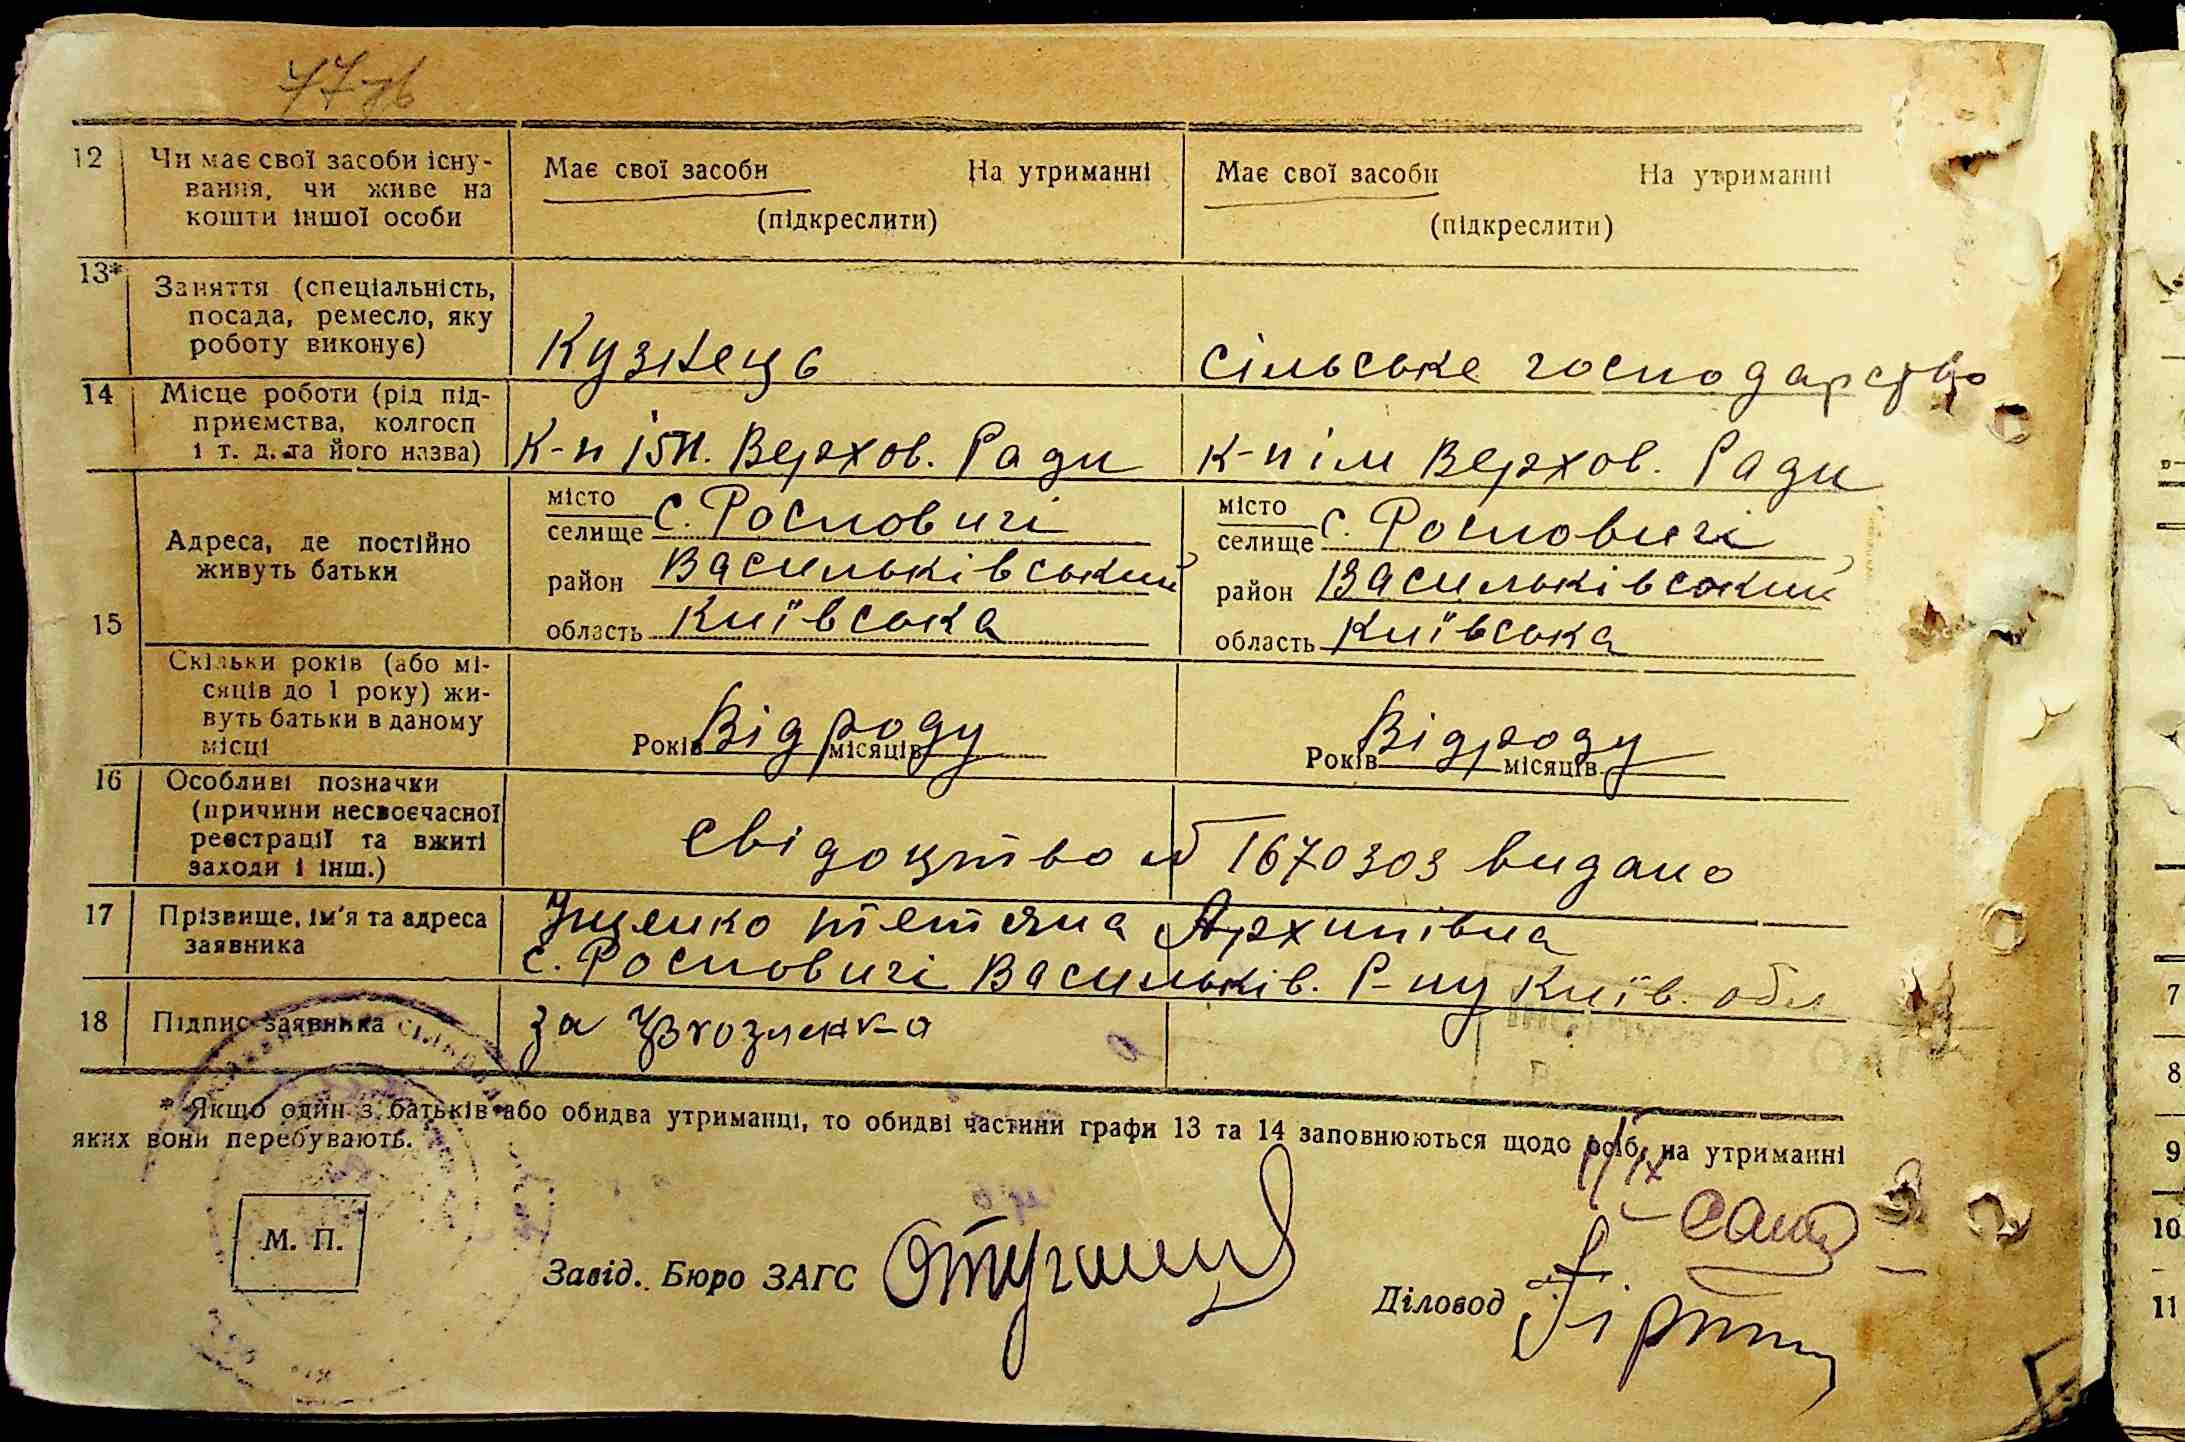 77зв
12 Чи має свої засоби існу-
вання, чи живе на
кошти іншої особи
Має свої засоби На утриманні
(підкреслити)
Має свої засоби На утриманні
(підкреслити)
13* Заняття (спеціальність,
посада, ремесло, яку
роботу виконує)
Кузнець
сільське господарство
14 Місце роботи (рід під-
приємства, колгосп
і т. д. та його назва)
К-п ім. Верхов. Ради
К-п ім Верхов. Ради
15 Адреса, де постійно
живуть батьки
місто
селище с. Росповичі
район Васильківський
область Київська
місто
селище с. Росповичі
район Васильківський
область Київська
Скільки років (або мі-
сяців до 1 року) жи-
вуть батьки в даному
місці
Років Від роду місяців
Років Від роду місяців
16 Особливі позначки
(причини несвоєчасної
реєстрації та вжиті
заходи і інш.)
Свідоцтво № 1670303 видано
17 Прізвище, ім'я та адреса
заявника
Іщенко тетяна Архипівна
с. Росповичі Васильків. Р-ну Київ. обл
18 Підпис заявника
за
* Якщо один з батьків або обидва утриманці, то обидві частини графи 13 та 14 заповнюються щодо осіб, на утриманні
яких вони перебувають.
М. П.
Завід. Бюро ЗАГС
Діловод
7
8
9
10
11